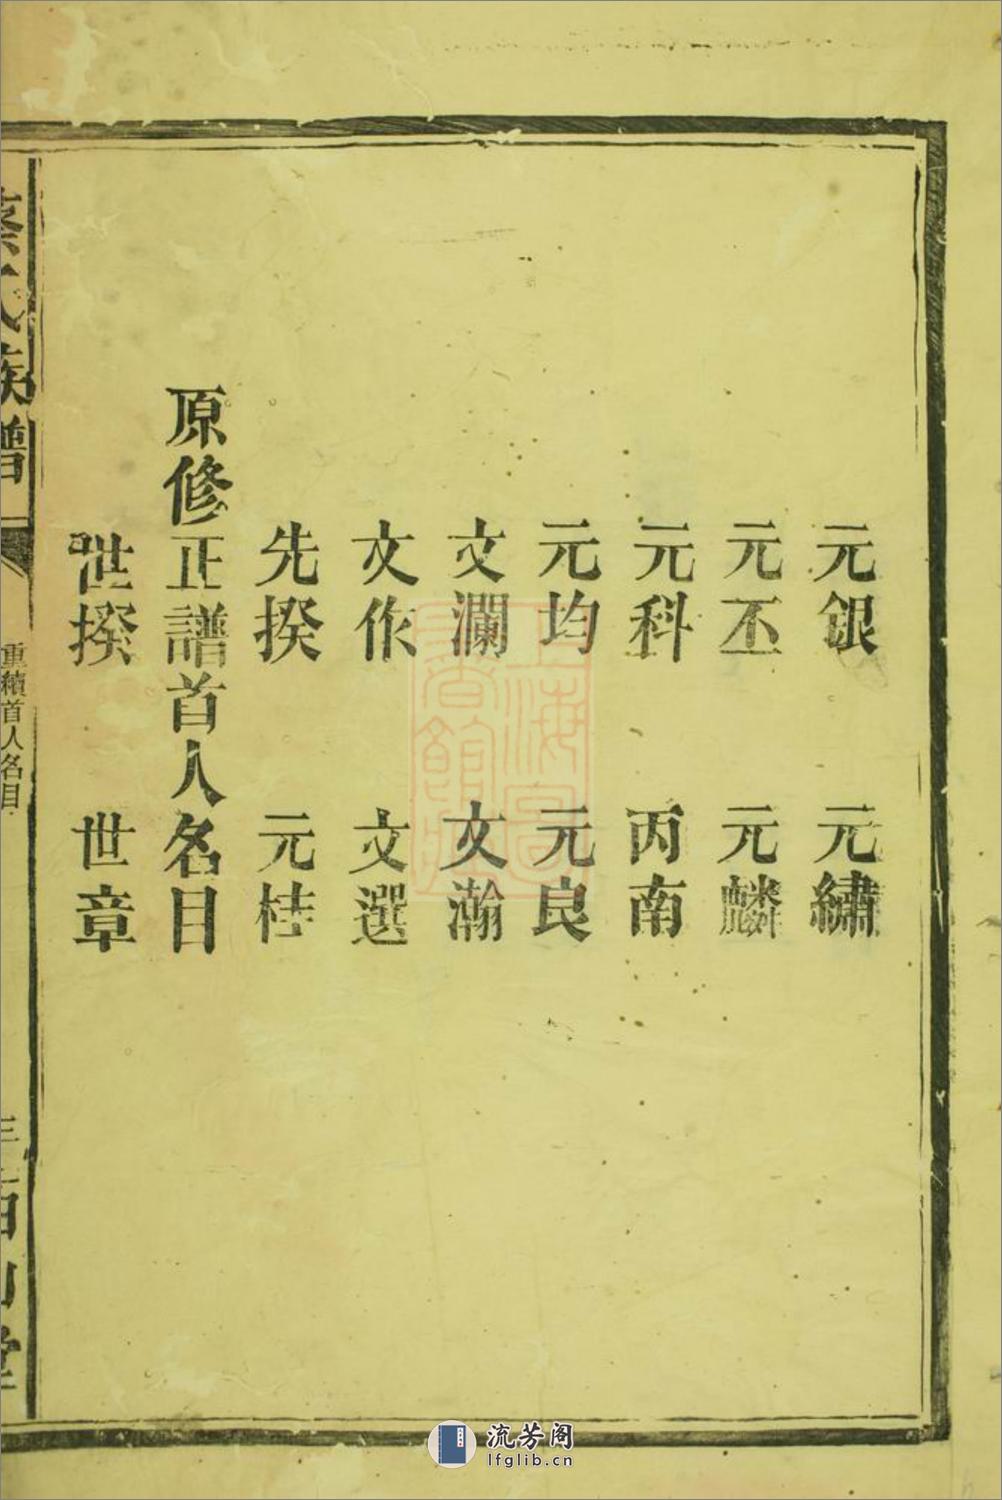 元銀 元繡
元丕 元麟
元科 丙南
元均 元良
文瀾 文瀚
文作 文選
先揆 元桂
原修正譜首人名目
世揆 世章
氏族譜
重續首人名目
三
上海圖書館藏
流芳阁
lfglib.cn